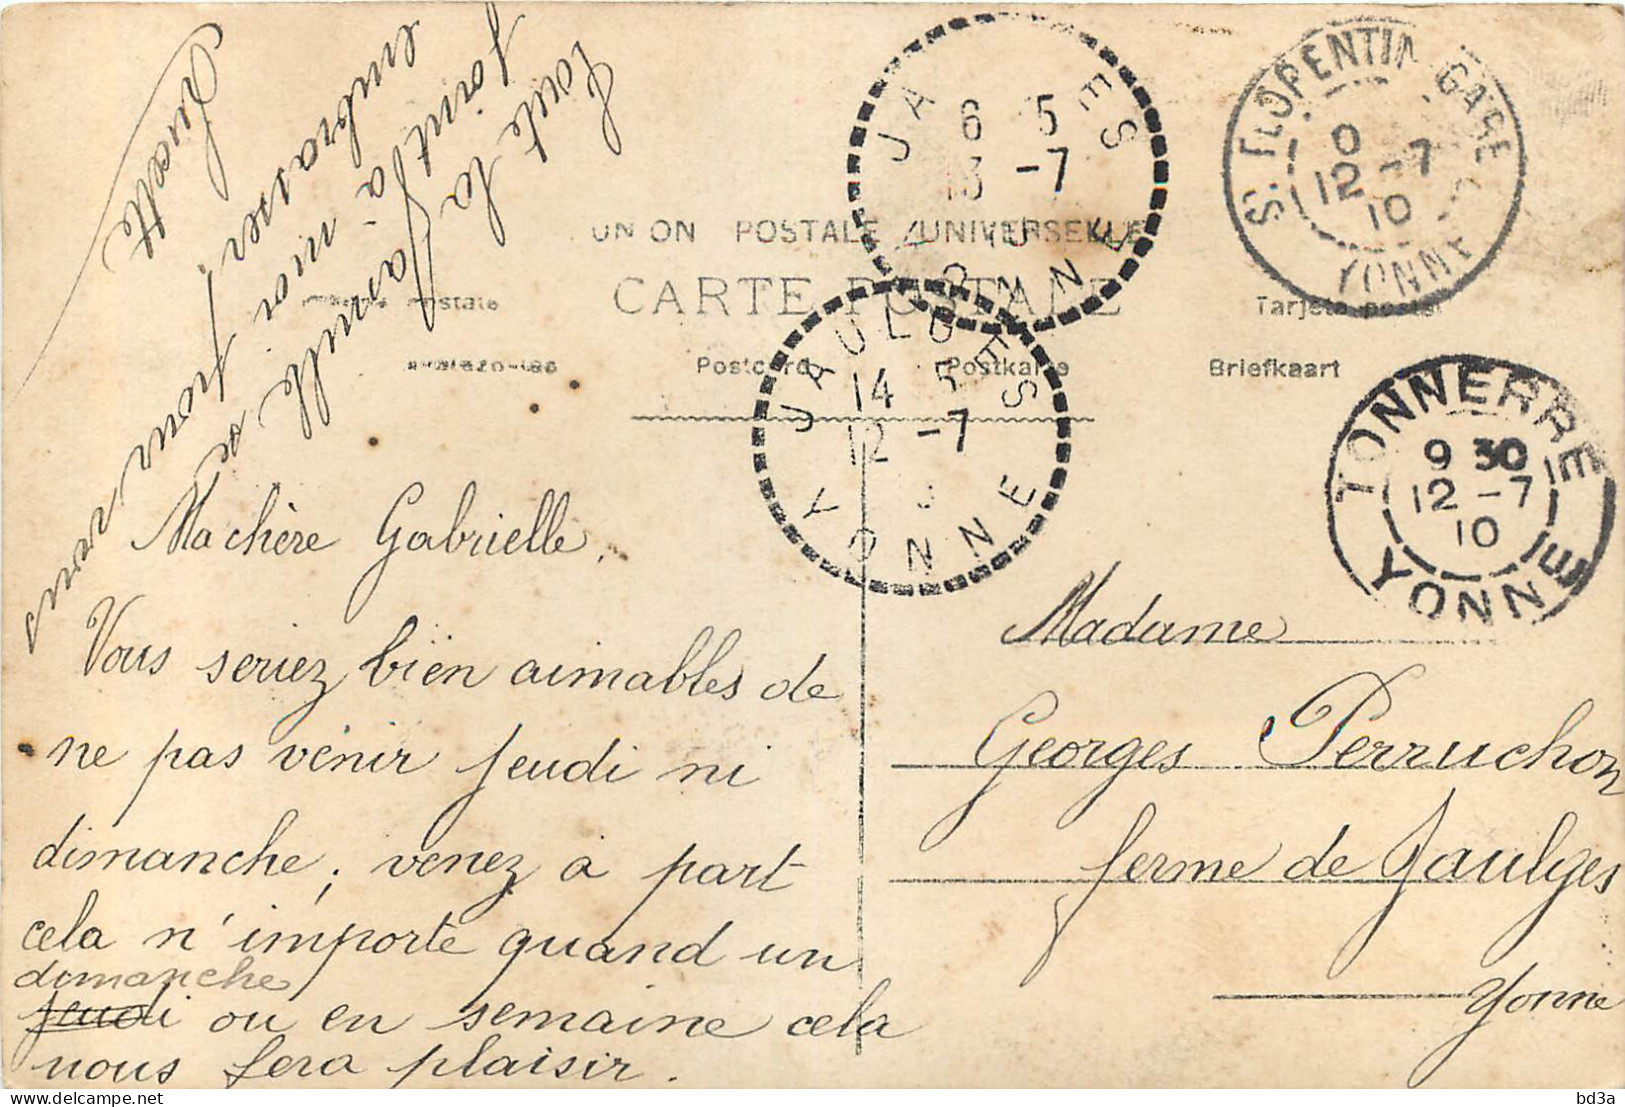 Toute la famille se
joint à moi pour vous
embrasser.
Lucette
UNION POSTALE UNIVERSELLE
CARTE POSTALE
Tarjeta postal
Postcard
Postkarte
Briefkaart
JAULGES
6 5
13 -7
YONNE
JAULGES
14 5
12 -7
YONNE
ST. FLORENTIN GARE
0
12 -7
10
YONNE
TONNERRE
9 30
12 -7
10
YONNE
Ma chère Gabrielle.
Vous seriez bien aimables de
ne pas venir jeudi ni
dimanche; venez à part
cela n'importe quand un
dimanche
jeudi ou en semaine cela
nous fera plaisir.
Madame
Georges Perruchon
ferme de Jaulges
Yonne
bd3a